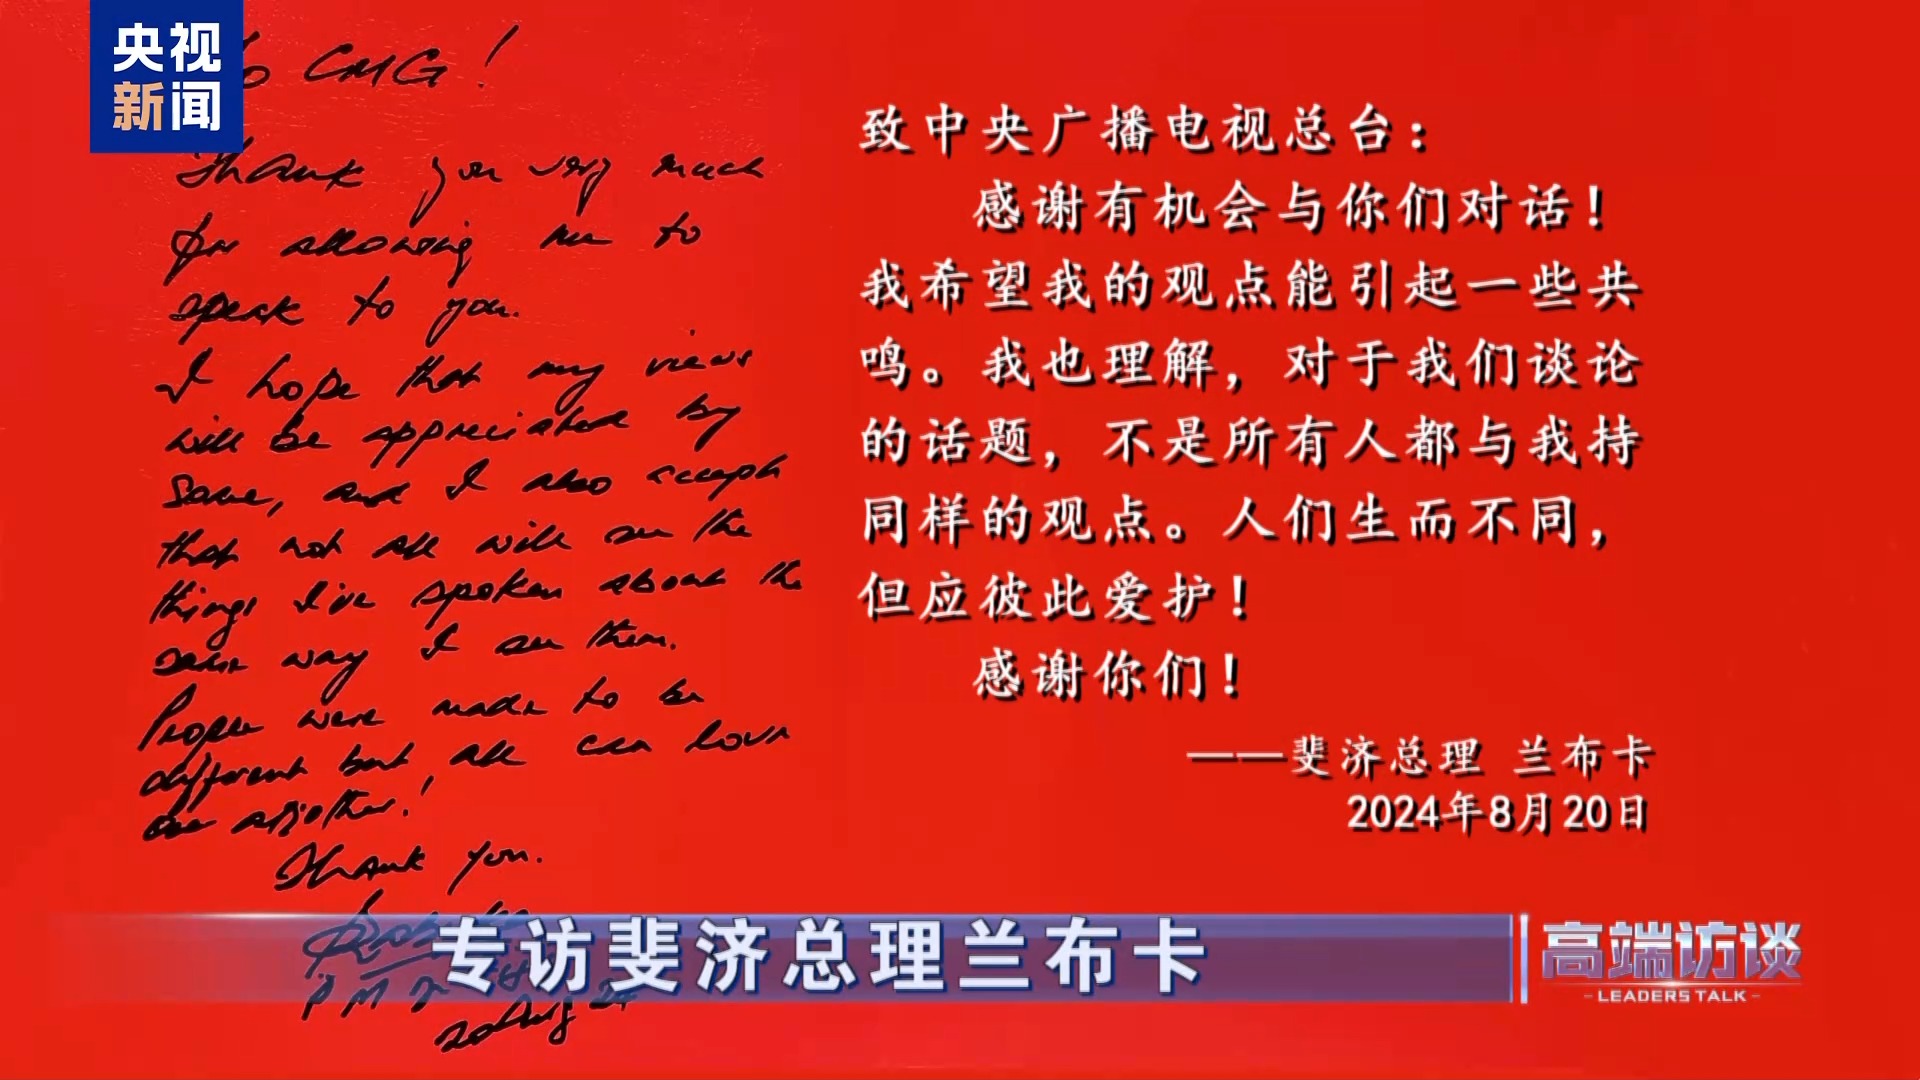 央视
新闻
To CMG!
Thank you very much
for allowing me to
speak to you.
I hope that my views
will be appreciated by
some, and I also accept
that not all will see the
things I've spoken about the
same way I see them.
People were made to be
different but, all can love
one another!
Thank you.
PM
20 Aug 24
致中央广播电视总台：
感谢有机会与你们对话！
我希望我的观点能引起一些共
鸣。我也理解，对于我们谈论
的话题，不是所有人都与我持
同样的观点。人们生而不同，
但应彼此爱护！
感谢你们！
——斐济总理 兰布卡
2024年8月20日
专访斐济总理兰布卡
高端访谈
-LEADERS TALK-